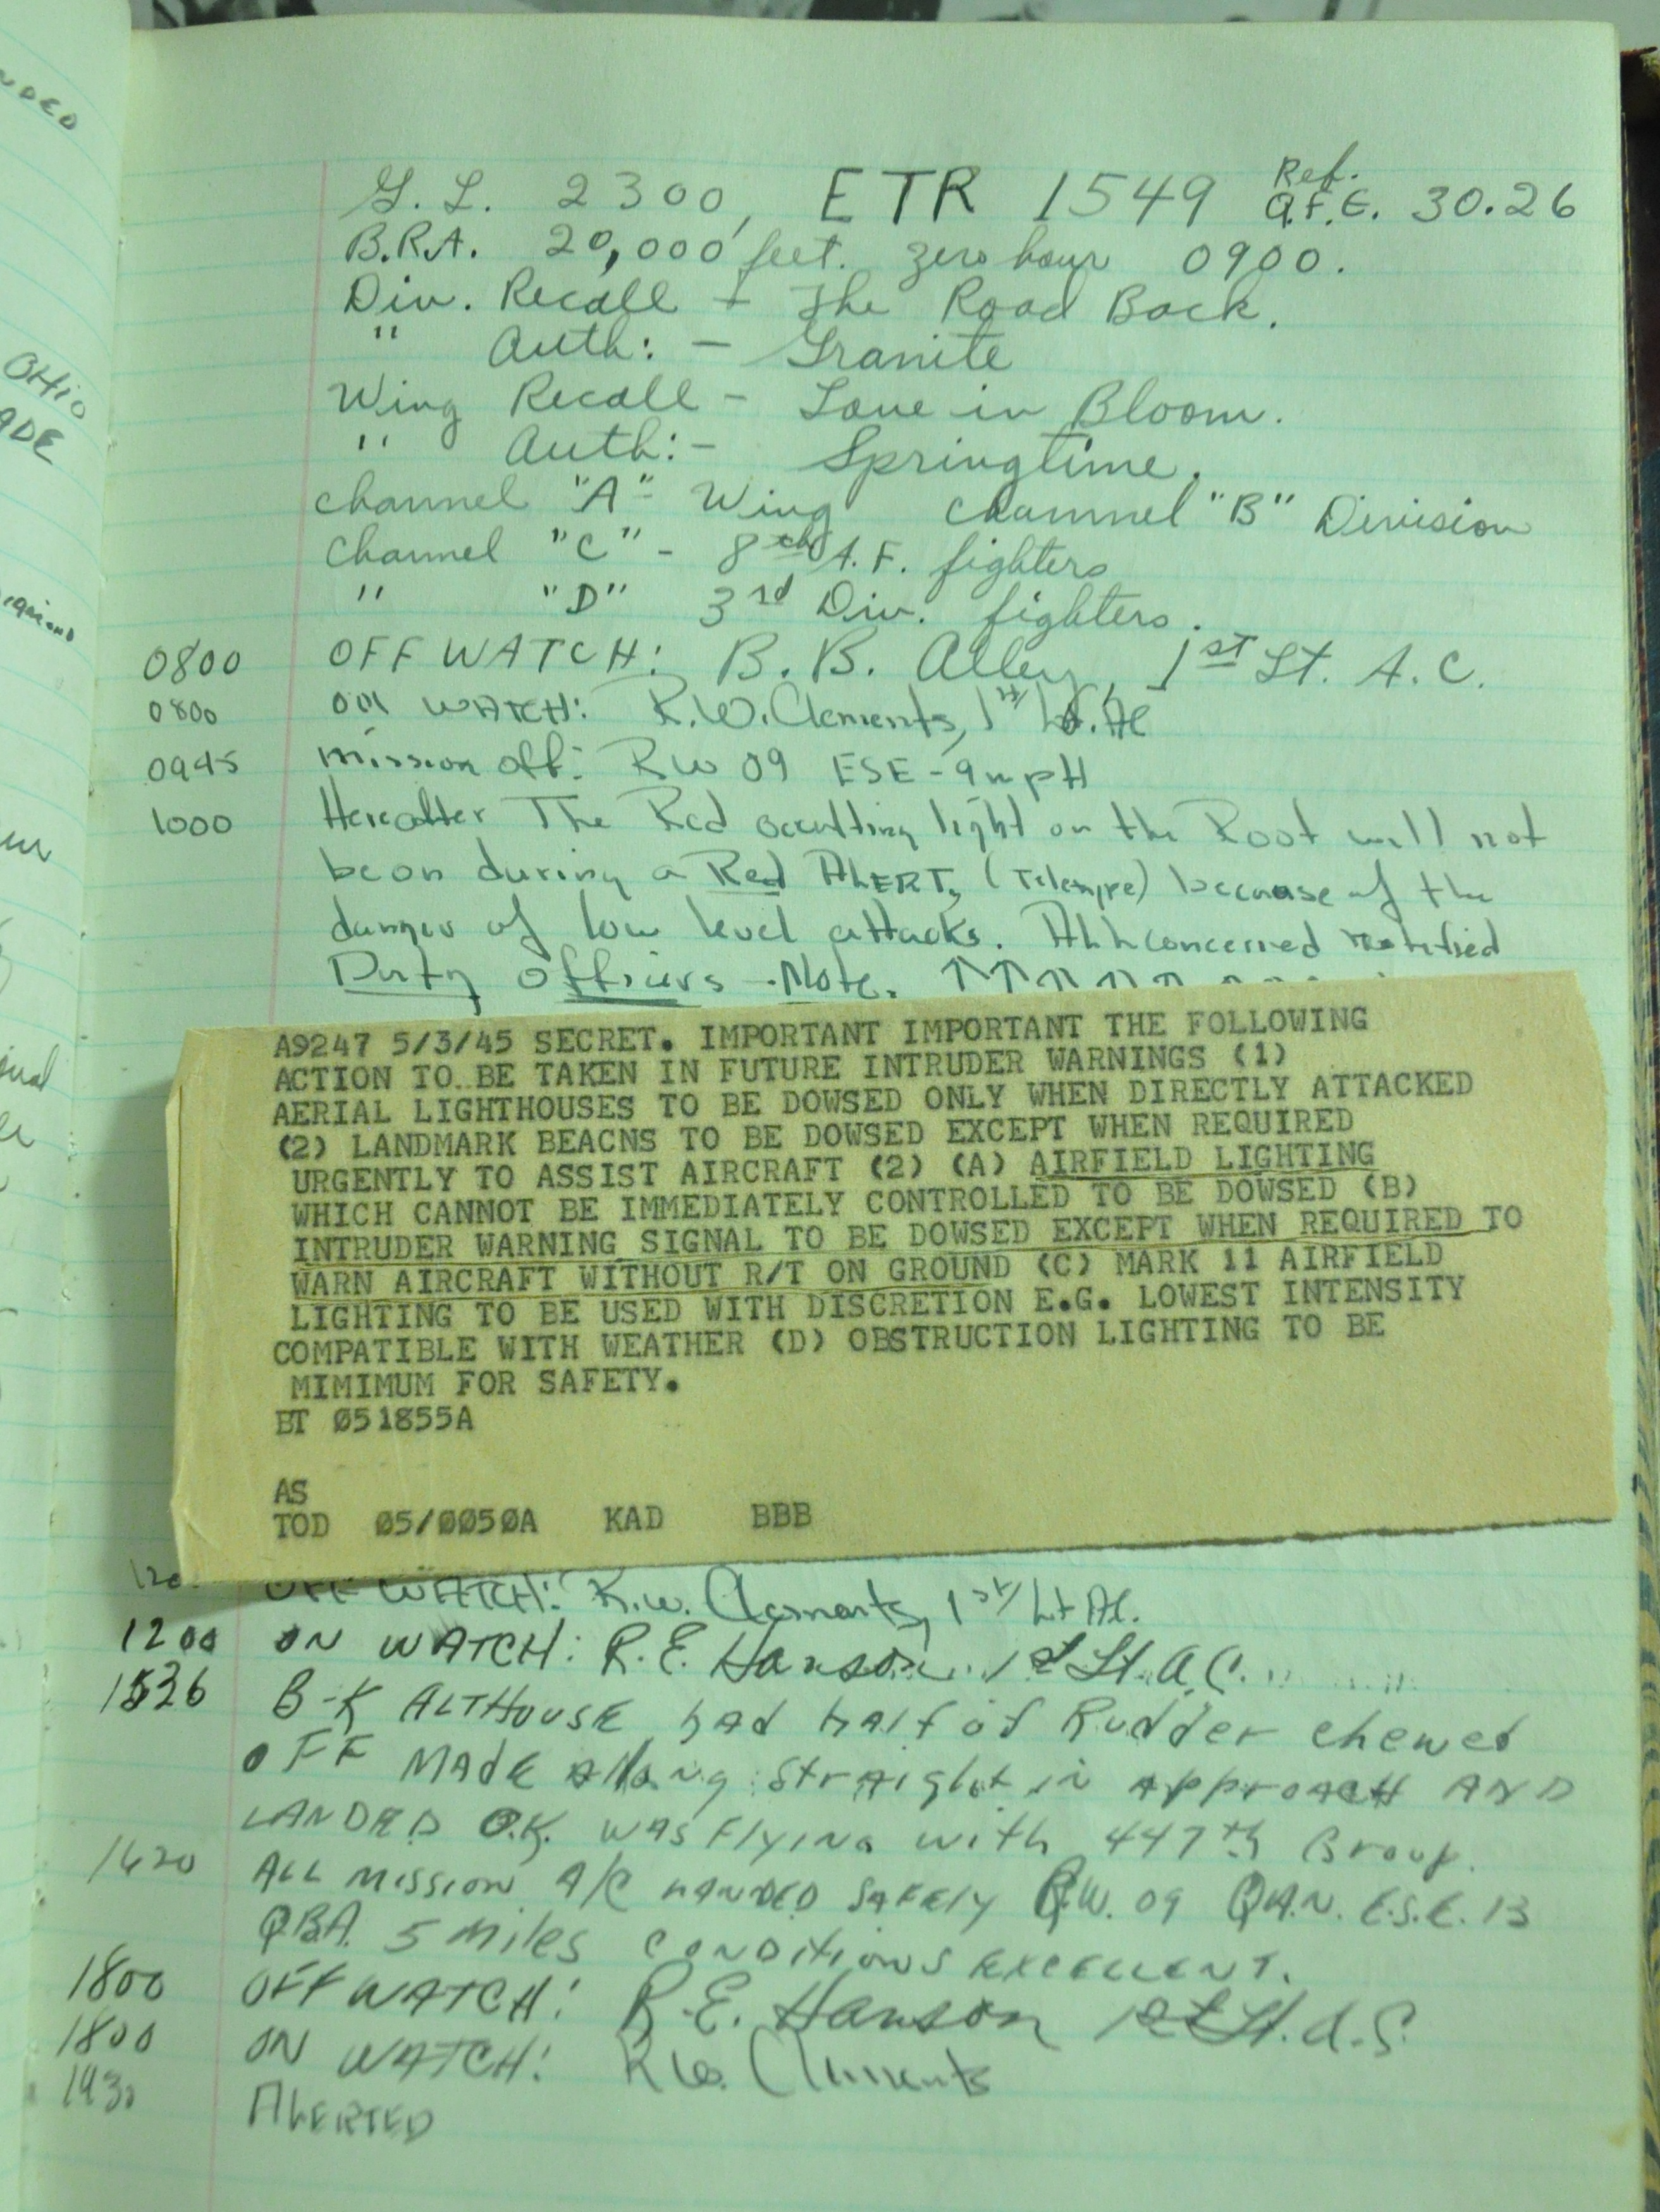 NDED
OHIO
ADE
G.L. 2300, ETR 1549 Ref. Q.F.E. 30.26
B.R.A. 20,000 feet. Zero hour 0900.
Div. Recall - The Road Back.
" Auth: - Granite
Wing Recall - Love in Bloom.
" Auth:- Springtime.
Channel "A" - Wing Channel "B" Division
Channel "C" - 8th A.F. fighters
" "D" 3rd Div. fighters.
0800 OFF WATCH: B.B. Alley, 1st Lt. A.C.
0800 ON WATCH: R.W. Clements, 1st Lt. AC
0945 Mission off: RW 09 ESE - 9 mpH
1000 Hereafter The Red occulting light on the Roof will not
be on during a Red ALERT, (Teletype) because of the
danger of low level attacks. All concerned notified
Duty Officers - Note. ↑↑↑↑↑↑
A9247 5/3/45 SECRET. IMPORTANT IMPORTANT THE FOLLOWING
ACTION TO BE TAKEN IN FUTURE INTRUDER WARNINGS (1)
AERIAL LIGHTHOUSES TO BE DOWSED ONLY WHEN DIRECTLY ATTACKED
(2) LANDMARK BEACNS TO BE DOWSED EXCEPT WHEN REQUIRED
URGENTLY TO ASSIST AIRCRAFT (2) (A) AIRFIELD LIGHTING
WHICH CANNOT BE IMMEDIATELY CONTROLLED TO BE DOWSED (B)
INTRUDER WARNING SIGNAL TO BE DOWSED EXCEPT WHEN REQUIRED TO
WARN AIRCRAFT WITHOUT R/T ON GROUND (C) MARK 11 AIRFIELD
LIGHTING TO BE USED WITH DISCRETION E.G. LOWEST INTENSITY
COMPATIBLE WITH WEATHER (D) OBSTRUCTION LIGHTING TO BE
MIMIMUM FOR SAFETY.
BT Ø51855A
AS
TOD Ø5/ØØ5ØA KAD BBB
OFF WATCH: R.W. Clements, 1st Lt AC.
1200 ON WATCH: R.E. Hanson 1st Lt. A.C.
1536 B-K ALTHOUSE had half of Rudder chewed
OFF MADE A long straight in APPROACH AND
LANDED O.K. WAS Flying with 447th Group.
1620 ALL MISSION A/C LANDED SAFELY R.W. 09 QAN. E.S.E. 13
QBA. 5 Miles CONDITIONS EXCELLENT.
1800 OFF WATCH: R.E. Hanson 1st Lt. A.C.
1800 ON WATCH: R.W. Clements
1930 ALERTED